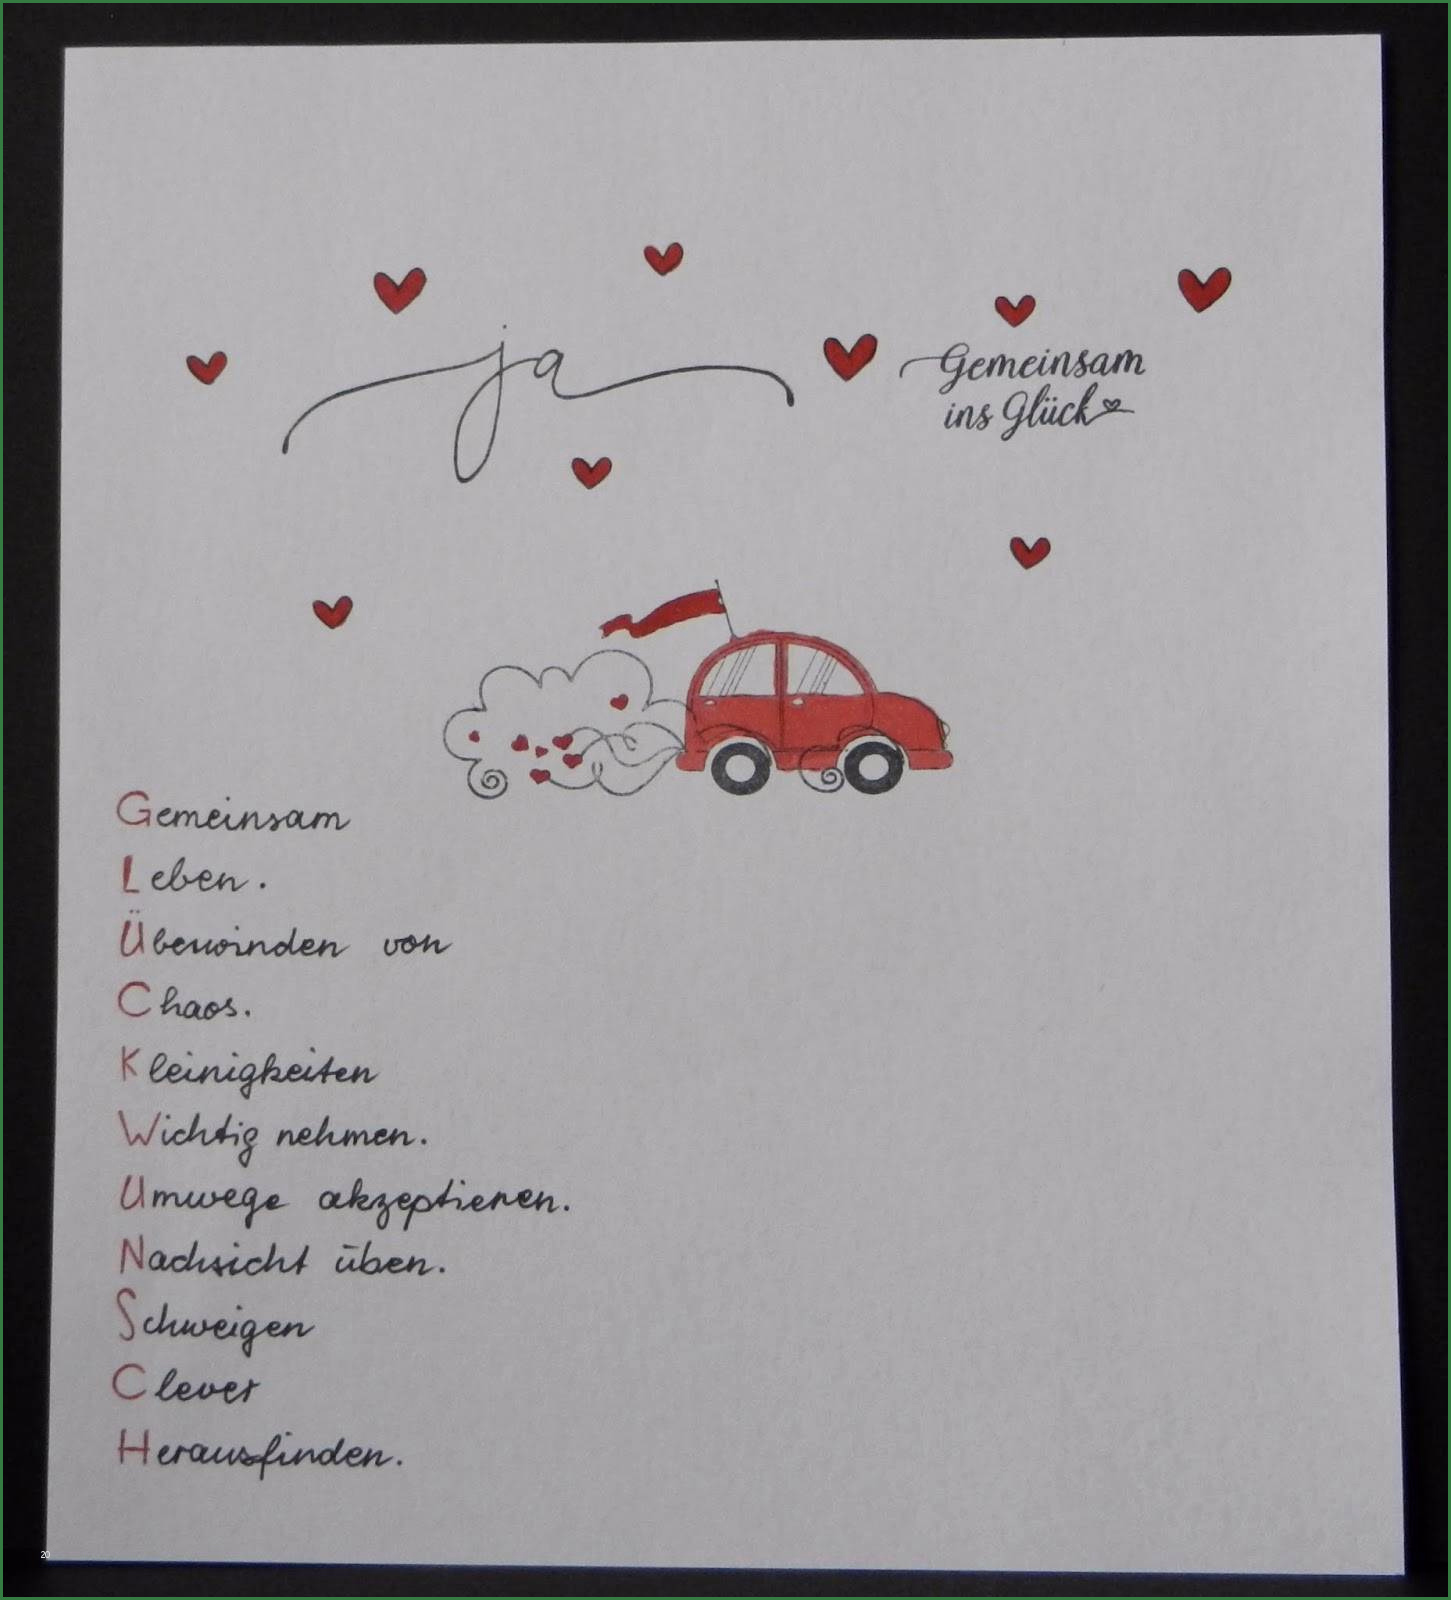 ja
Gemeinsam
ins Glück
Gemeinsam
Leben.
Überwinden von
Chaos.
Kleinigkeiten
Wichtig nehmen.
Umwege akzeptieren.
Nachsicht üben.
Schweigen
Clever
Herausfinden.
20